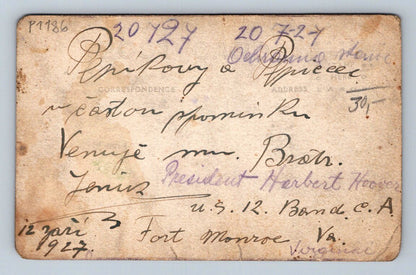 P1186
20 727 20 7-27
CORRESPONDENCE ADDRESS
Pepíkovy a
30,-
v častou
Venuje Bratr.
President Herbert Hoover
U.S. 12. Band C.A
12 září 1927. Fort Monroe Va.
Virginia